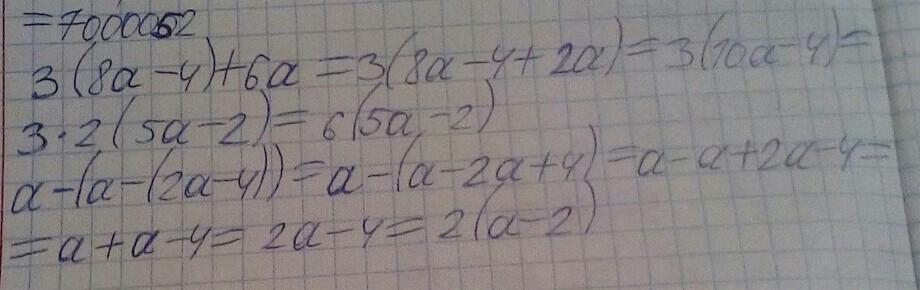 =7000052
3(8a-4)+6a=3(8a-4+2a)=3(10a-4)=
3·2(5a-2)=6(5a-2)
a-(a-(2a-4))=a-(a-2a+4)=a-a+2a-4=
=a+a-4=2a-4=2(a-2)